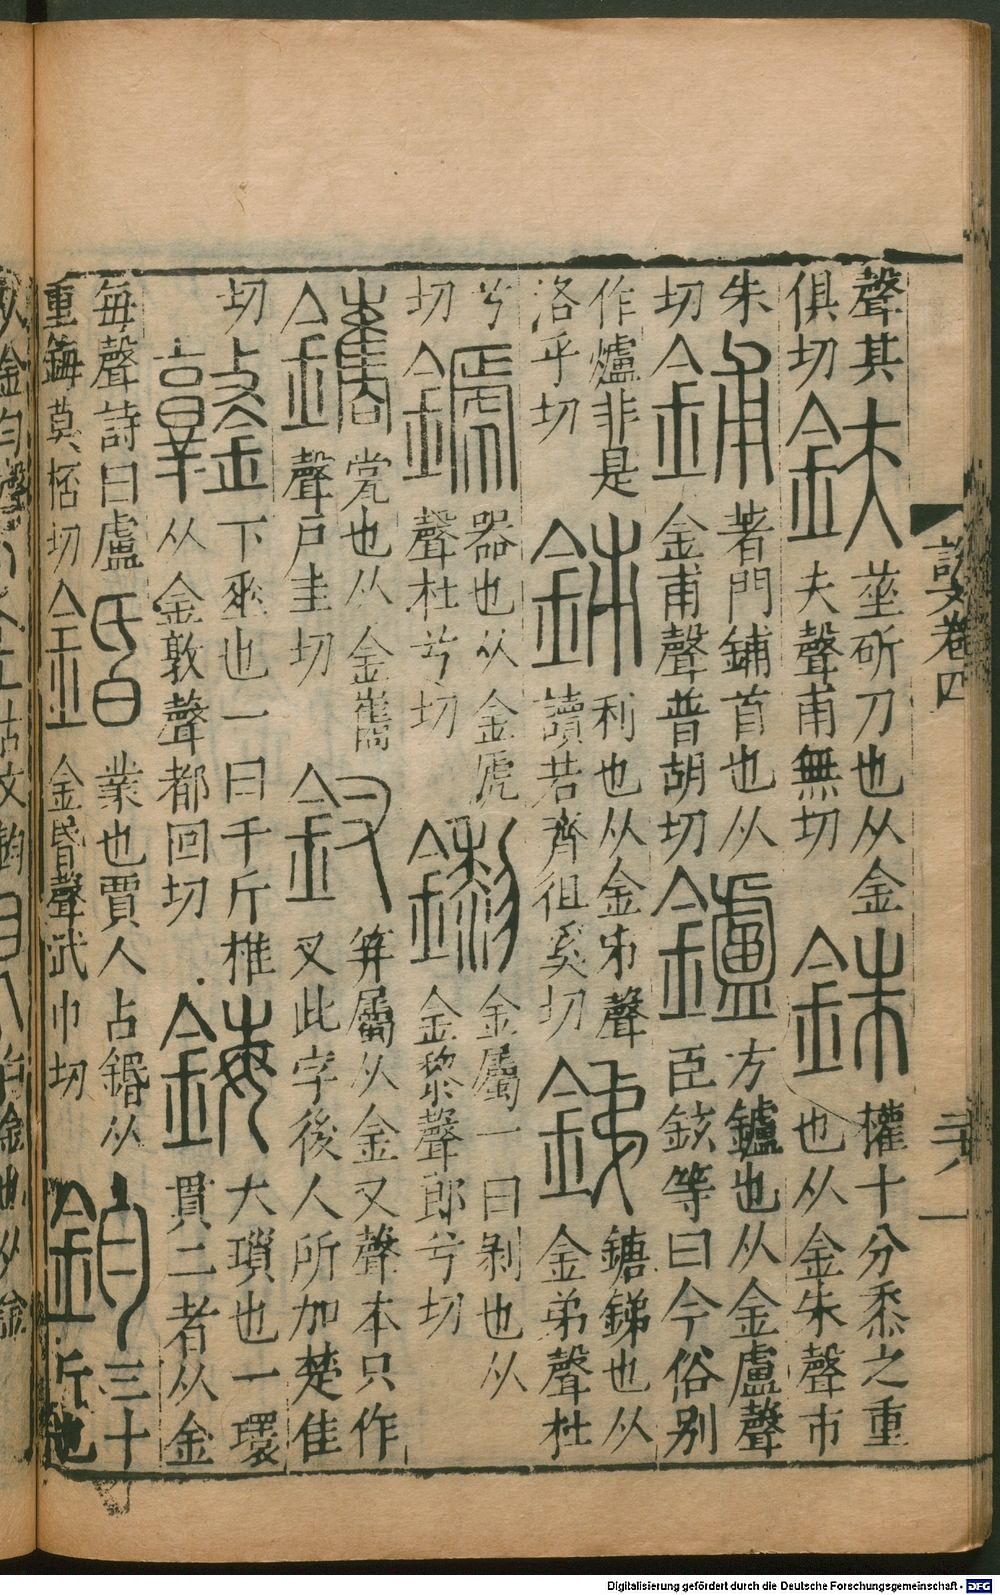 聲其
俱切
鈇
莝斫刀也从金
夫聲甫無切
銖
權十分黍之重
也从金朱聲市
朱
切
鋪
著門鋪首也从
金甫聲普胡切
鑪
方鑪也从金盧聲
臣鉉等曰今俗別
作爐非是
洛乎切
利也从金𠂔聲
讀若齊徂奚切
銻
鎕銻也从
金弟聲杜
兮
切
器也从金虒
聲杜兮切
鑗
金屬一曰剝也从
金黎聲郎兮切
鑴
瓽也从金巂
聲戶圭切
釵
笄屬从金叉聲本只作
叉此字後人所加楚佳
切
鐓
下垂也一曰千斤椎
从金敦聲都回切
鋂
大瑣也一環
貫二者从金
每聲詩曰盧
重鋂莫桮切
錉
業也賈人占錉从
金昏聲武巾切
鈞
三十
斤也
說文卷四
Digitalisierung gefördert durch die Deutsche Forschungsgemeinschaft - DFG